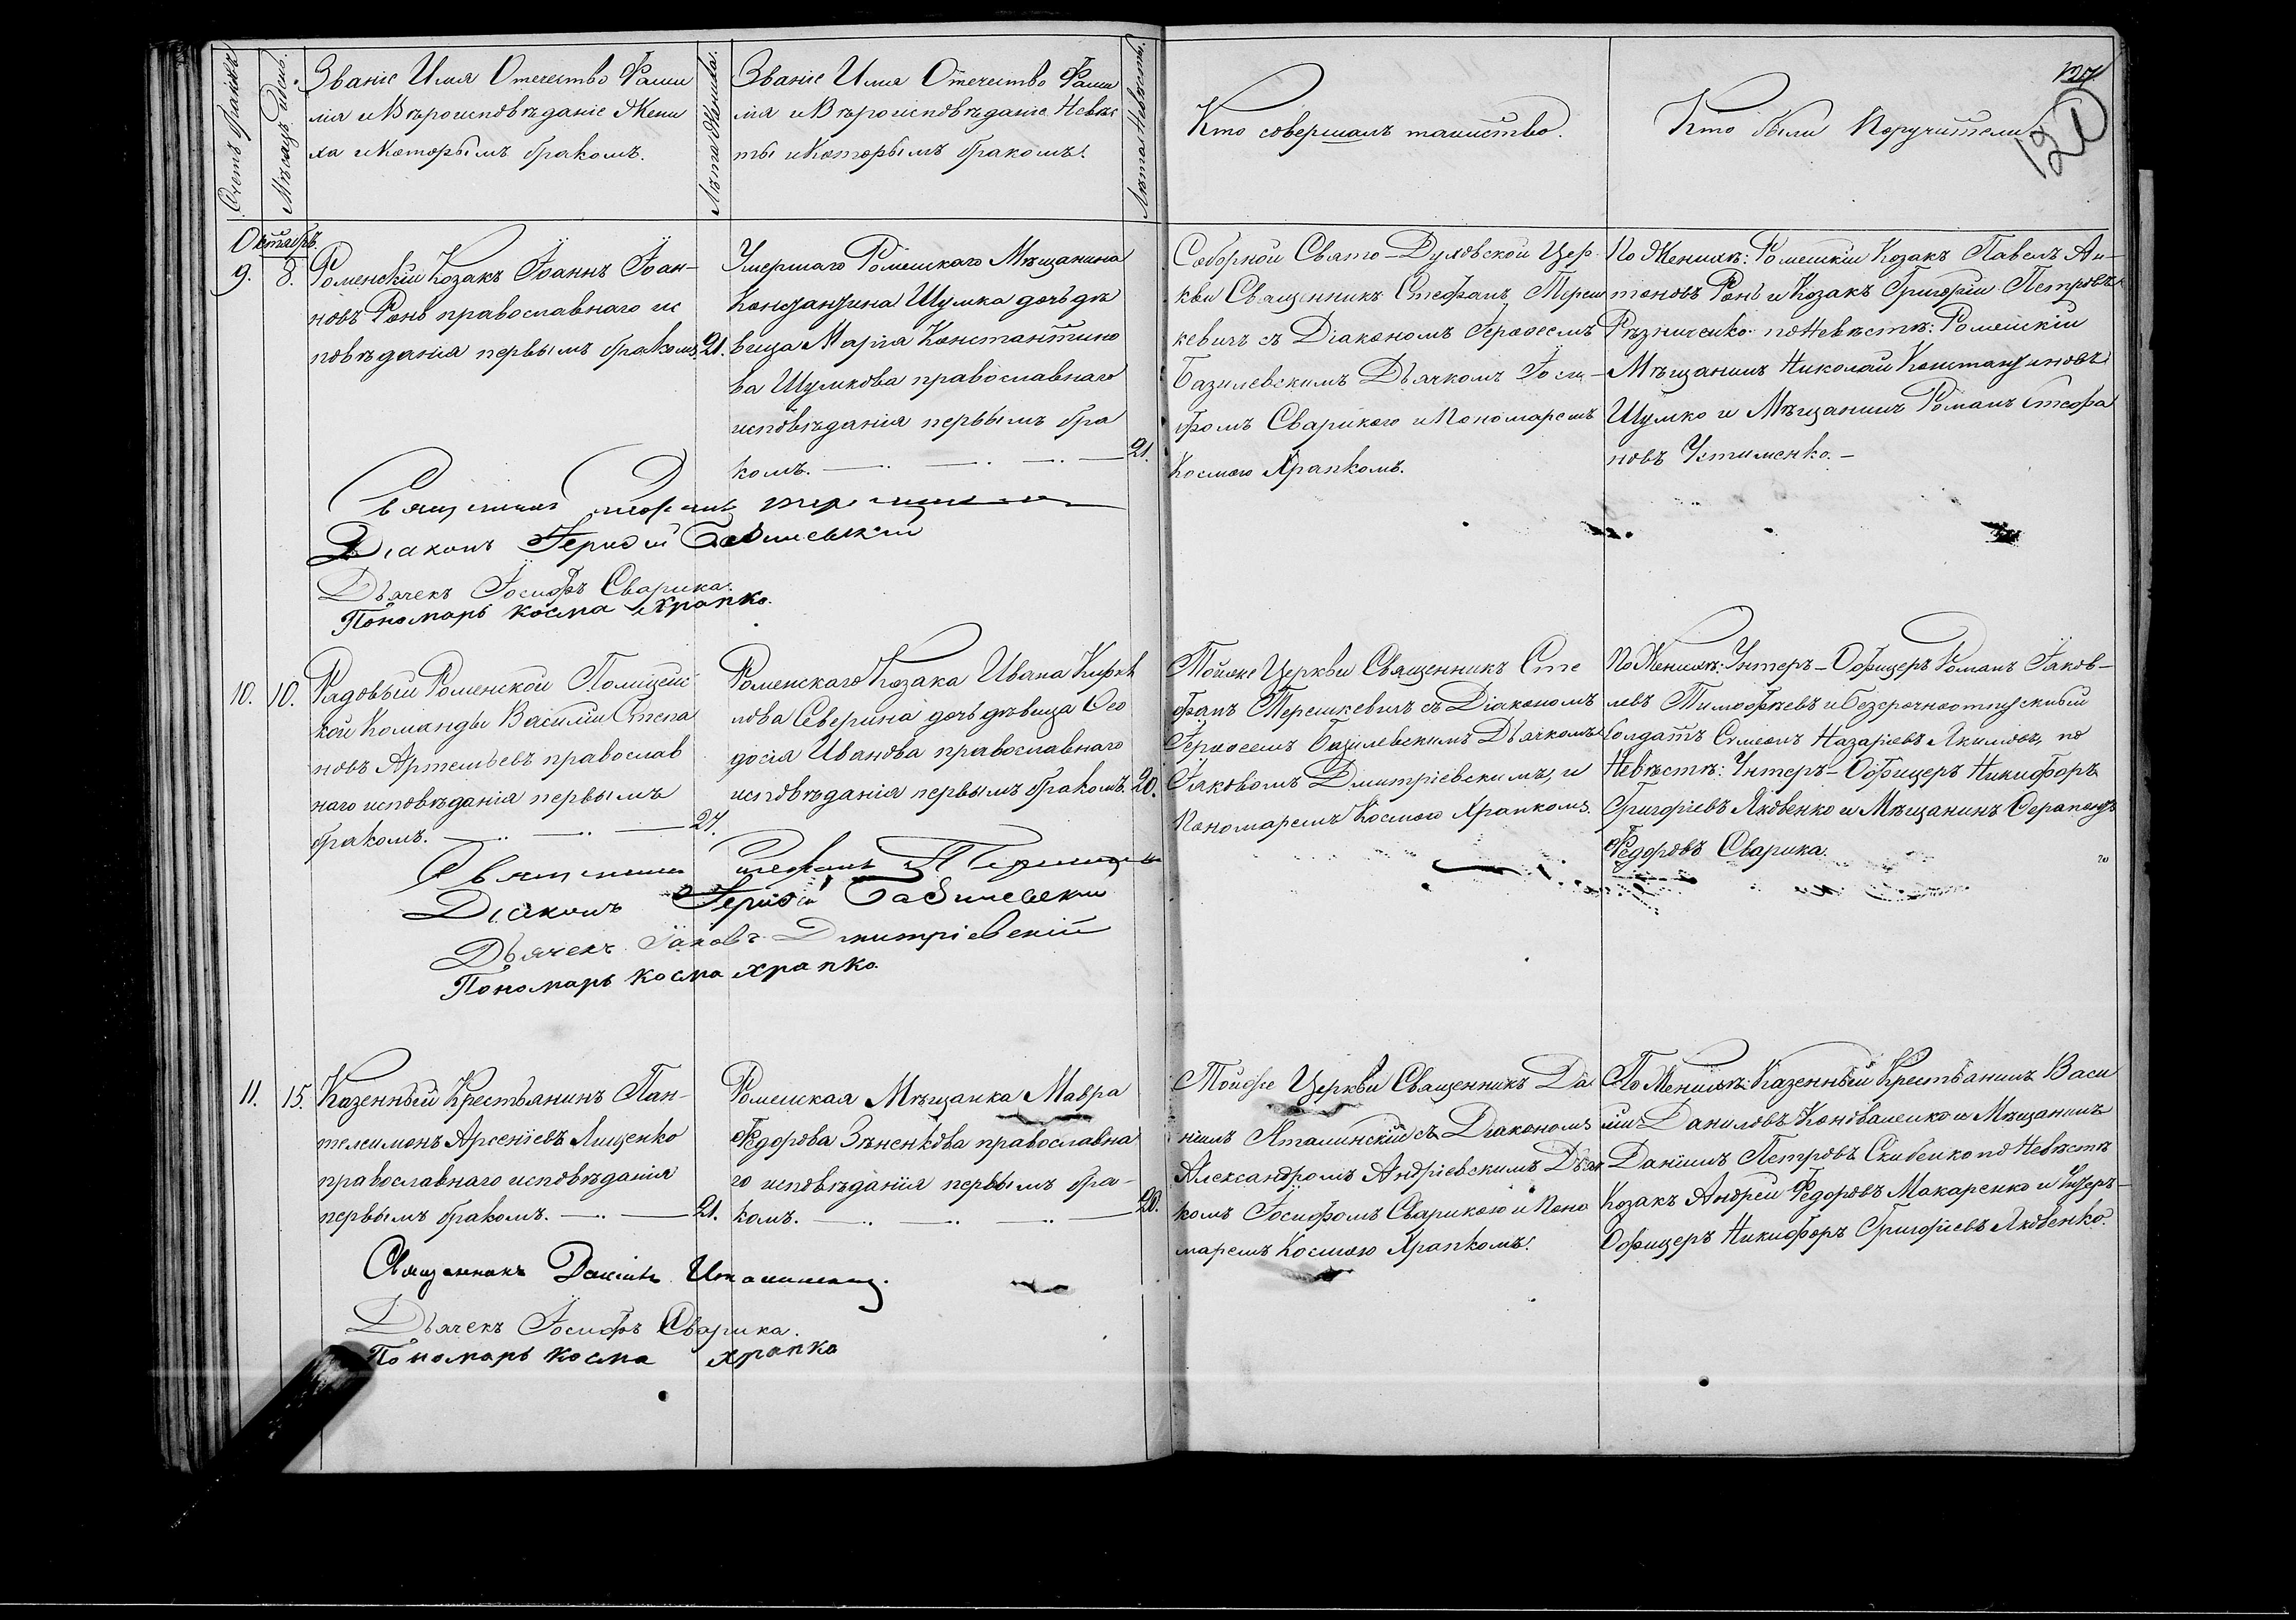 Счетъ браковъ
Мѣсяцъ и день.
Званіе Имя Отечество Фами
лія и Вѣроисповѣданіе Жени
ха и Которымъ бракомъ.
Лѣта Жениха.
Званіе Имя Отечество Фами
лія и Вѣроисповѣданіе Невѣс
ты и Которымъ бракомъ.
Лѣта Невѣсты.
Кто совершалъ таинство.
Кто были Поручители
Октябрь.
9.
8.
Роменскій Козакъ Іоаннъ Іоан-
новъ Рень православнаго ис
повѣданія первымъ бракомъ.
21.
Умершаго Роменскаго Мѣщанина
Константина Шумка дочь дѣ
вица Марія Константино
ва Шумкова православнаго
исповѣданія первымъ бра
комъ.
21.
Соборной Свято-Духовской Цер
кви Священникъ Стефанъ Тереш
кевичъ съ Діакономъ Героѳеемъ
Базилевскимъ Дьячкомъ Іоси-
фомъ Сварикою и Пономаремъ
Космою Храпкомъ.
По Женихѣ: Роменскій Козакъ Павелъ Ан-
тоновъ Рень и Козакъ Григорій Петровъ
Рѣзниченко по Невѣстѣ: Роменскій
Мѣщанинъ Николай Константиновъ
Шумко и Мѣщанинъ Романъ Стефа
новъ Устименко.-
Священникъ Стефанъ
Діаконъ Героѳей Базилевскій
Дьячекъ Іосифъ Сварика.
Пономарь Косма Храпко.
10.
10.
Рядовый Роменской Полицейс
кой Команды Василій Степа
новъ Артемьевъ православ
наго исповѣданія первымъ
бракомъ.
27.
Роменскаго Козака Ивана
лова Северина дочь дѣвица Ѳео
досія Иванова православнаго
исповѣданія первымъ бракомъ.
20.
Тойже Церкви Священникъ Сте
фанъ Терешкевичъ съ Діакономъ
Героѳеемъ Базилевскимъ Дьячкомъ
Іаковомъ Дмитріевскимъ, и
Пономаремъ Космою Храпкомъ.
По Женихѣ: Унтеръ-Офицеръ Романъ Іаков-
левъ Тимофѣевъ и Безсрочноотпускный
Солдатъ Симеонъ Назаріевъ Якимовъ, по
Невѣстѣ: Унтеръ-Офицеръ Никифоръ
Григоріевъ Яковенко и Мѣщанинъ Ѳерапонтъ
Федоровъ Сварика.
Священникъ Стефанъ
Діаконъ Героѳей Базилевскій
Дьячекъ Іаковъ Дмитріевскій
Пономарь Косма Храпко.
11.
15.
Казенный Крестьянинъ Пан-
телеимонъ Арсеніевъ Лищенко
православнаго исповѣданія
первымъ бракомъ.
21.
Роменская Мѣщанка Мавра
Федорова Зѣненкова православна
го исповѣданія первымъ бра-
комъ.
20.
Тойже Церкви Священникъ Да
ніилъ Яталинскій съ Діакономъ
Александромъ Андріевскимъ Дьяч
комъ Іосифомъ Сварикою и Поно
маремъ Космою Храпкомъ.
По Женихѣ: Казенный Крестьянинъ Васи
лій Даниловъ Коноваленко и Мѣщанинъ
Даніилъ Петровъ Скибенко по Невѣстѣ
Козакъ Андрей Федоровъ Макаренко и Унтеръ-
Офицеръ Никифоръ Григоріевъ Яковенко.
Священникъ Даніилъ
Дьячекъ Іосифъ Сварика.
Пономарь Косма Храпко